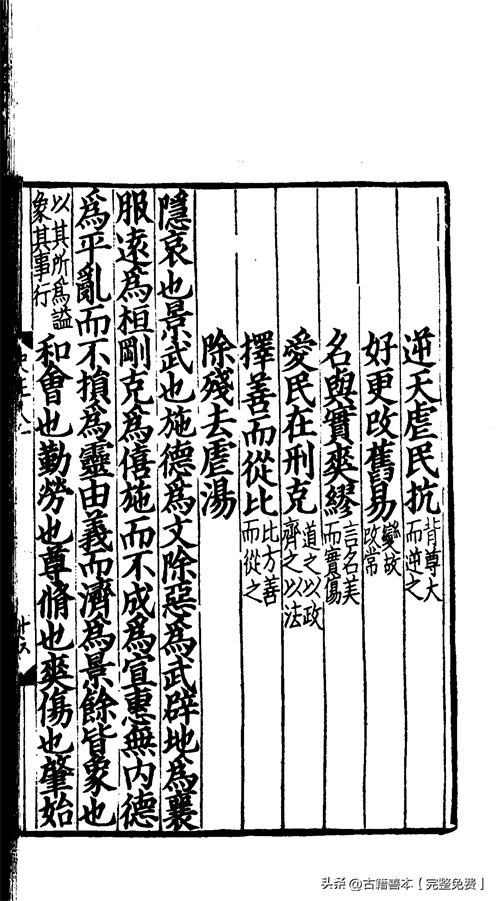 逆天虐民抗背尊大而逆之
好更改舊易變故改常
名與實爽繆言名美而實傷
愛民在刑克道之以政齊之以法
擇善而從比比方善而從之
除殘去虐湯
隱哀也景武也施德爲文除惡爲武辟地爲襄
服遠爲桓剛克爲僖施而不成爲宣惠無內德
爲平亂而不損爲靈由義而濟爲景餘皆象也
以其所爲謚象其事行和會也勤勞也尊脩也爽傷也肇始
头条 @古籍善本【完整免费】